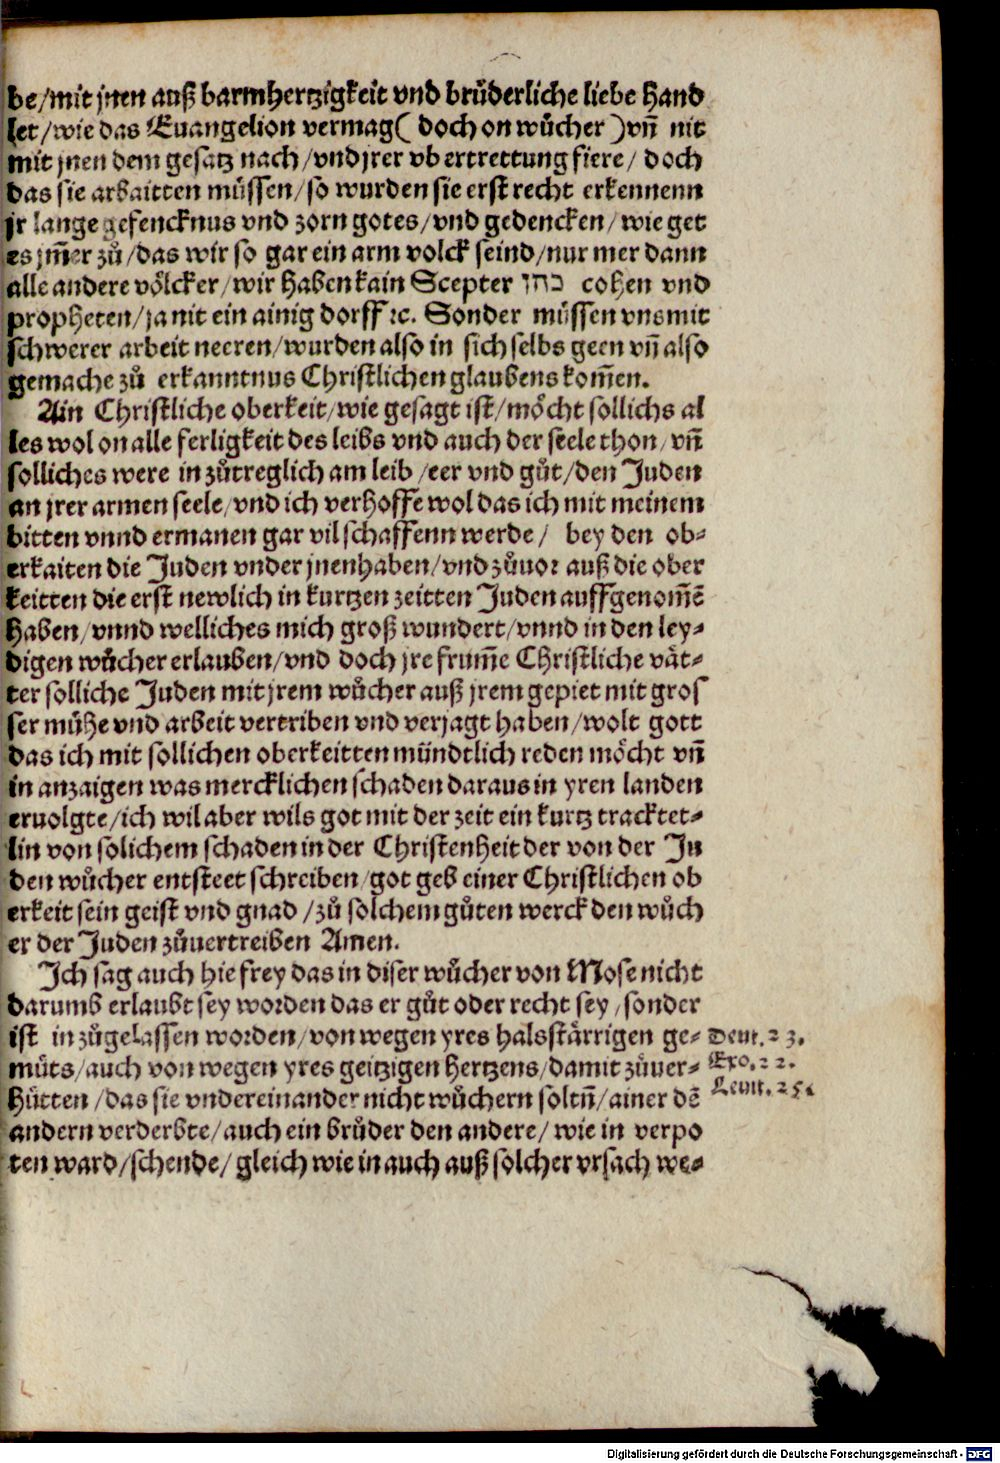 be/mit jnen auß barmhertzigkeit vnd brůderliche liebe hand
let/wie das Euangelion vermag( doch on wůcher )vn̄ nit
mit jnen dem gesatz nach/vnd jrer vbertrettung fiere/ doch
das sie arbaitten müssen/so wurden sie erst recht erkennenn
jr lange gefencknus vnd zorn gotes/vnd gedencken/wie get
es jm̄er zů/das wir so gar ein arm volck seind/nur mer dann
alle andere völcker/wir haben kain Scepter כהן cohen vnd
propheten/ja nit ein ainig dorff ꝛc. Sonder müssen vns mit
schwerer arbeit neeren/wurden also in sich selbs geen vn̄ also
gemache zů erkanntnus Christlichen glaubens kom̄en.
Ain Christliche oberkeit/wie gesagt ist/möcht sollichs al
les wol on alle ferligkeit des leibs vnd auch der seele thon/vn̄
solliches were in zůtreglich am leib/eer vnd gůt/den Juden
an jrer armen seele/vnd ich verhoffe wol das ich mit meinem
bitten vnnd ermanen gar vil schaffenn werde/ bey den ob-
erkaiten die Juden vnder jnen haben/vnd zůuor auß die ober
keitten die erst newlich in kurtzen zeitten Juden auffgenom̄ē
haben/vnnd welliches mich groß wundert/vnnd in den ley-
digen wůcher erlauben/vnd doch jre frum̄e Christliche vät-
ter solliche Juden mit jrem wůcher auß jrem gepiet mit gros
ser mühe vnd arbeit vertriben vnd verjagt haben/wolt gott
das ich mit sollichen oberkeitten mündtlich reden möcht vn̄
in anzaigen was mercklichen schaden daraus in yren landen
eruolgte/ich wil aber wils got mit der zeit ein kurtz tracktet-
lin von solichem schaden in der Christenheit der von der Ju
den wůcher entsteet schreiben/got geb einer Christlichen ob
erkeit sein geist vnd gnad/zů solchem gůten werck den wůch
er der Juden zůuertreiben Amen.
Jch sag auch hie frey das in diser wůcher von Mose nicht
darumb erlaubt sey worden das er gůt oder recht sey/sonder
ist in zůgelassen worden/von wegen yres halsstärrigen ge-
Deut.23.
můts/auch von wegen yres geitzigen hertzens/damit zůuer-
Exo.22.
hütten/das sie vndereinander nicht wůchern soltn̄/ainer dē
Leuit.25.
andern verderbte/auch ein brůder den andere/ wie in verpo
ten ward/schende/gleich wie in auch auß solcher vrsach we-
Digitalisierung gefördert durch die Deutsche Forschungsgemeinschaft - DFG